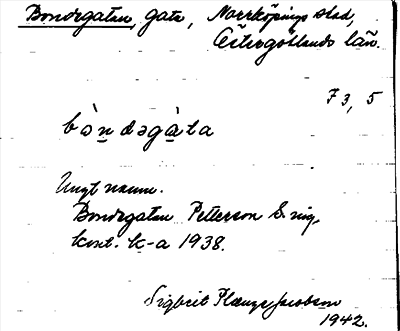 Bondegatan, gata, Norrköpings stad,
Östergötlands län.
F 3, 5
bò̀ndəgàta
Ungt namn.
Bondegatan Petterson S. 
kont. k-a 1938.
Sigbrit Plænge Jacobson
1942.